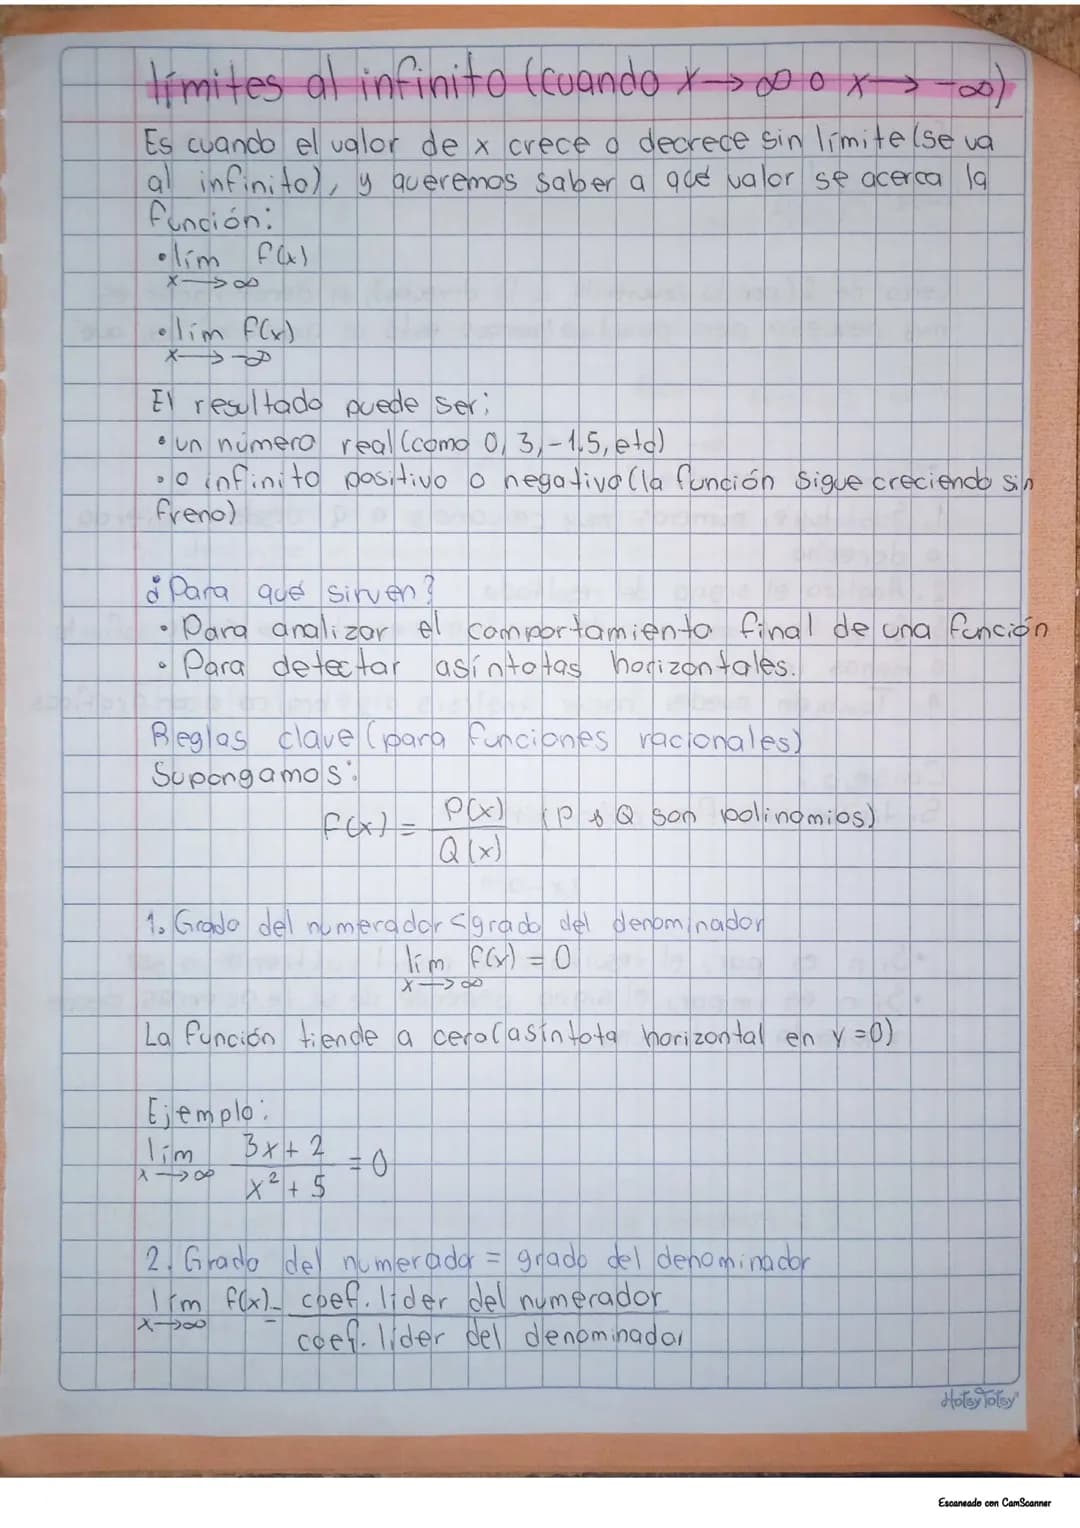 límites al infinito (cuando x→∞ o x→-∞)
Es cuando el valor de x crece o decrece sin límite (se va
al infinito), y queremos saber a qué valor se acerca la
función:
•lím f(x)
x→∞
•lím f(x)
x→-∞
El resultado puede ser:
• un número real (como 0, 3, -1.5, etc)
• o infinito positivo o negativo (la función sigue creciendo sin
freno)
¿Para qué sirven?
• Para analizar el comportamiento final de una función
• Para detectar asíntotas horizontales.
Reglas clave (para funciones racionales)
Supongamos:
f(x) = P(x) (P y Q son polinomios)
Q(x)
1. Grado del numerador < grado del denominador
lím f(x) = 0
x→∞
La función tiende a cero (asíntota horizontal en y=0)
Ejemplo:
lím 3x+2 = 0
x→∞ x²+5
2. Grado del numerador = grado del denominador
lím f(x) = coef. líder del numerador
x→∞ coef. líder del denominador
HotsyTotsy
Escaneado con CamScanner